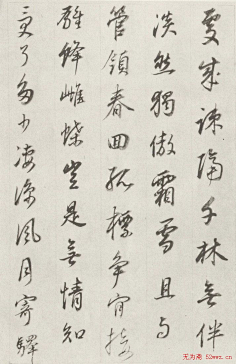 爱寂疎隔千林无伴
淡然独傲霜雪且与
管领春回孤标争肯接
雄蜂雌蝶岂是无情知
受了多少凄凉风月寄驿
无为斋 52wwz.cn